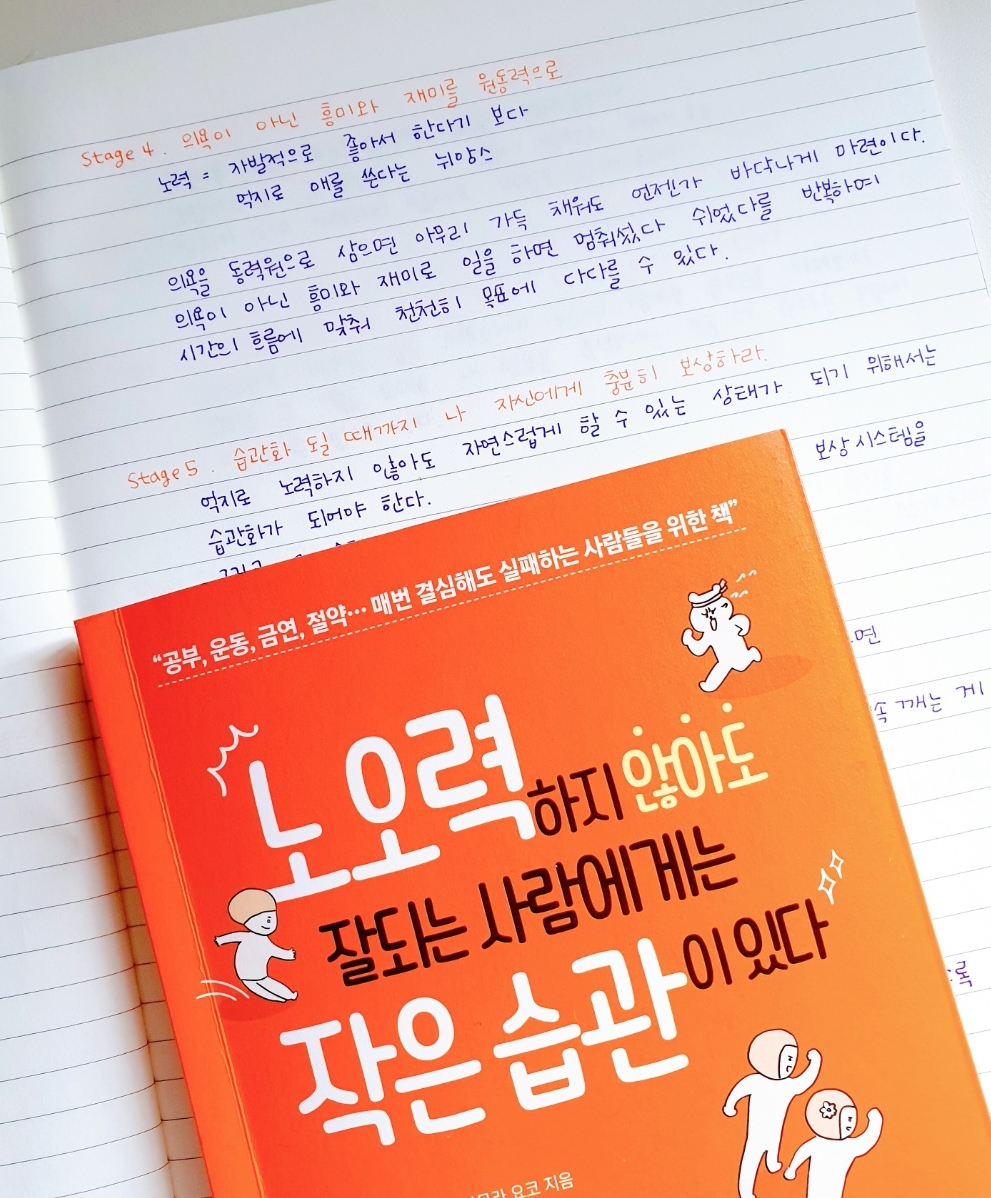 Stage 4. 의욕이 아닌 흥미와 재미를 원동력으로
노력 = 자발적으로 좋아서 한다기 보다
억지로 애를 쓴다는 뉘앙스
의욕을 동력원으로 삼으면 아무리 가득 채워도 언젠가 바닥나게 마련이다.
의욕이 아닌 흥미와 재미로 일을 하면 멈춰섰다 쉬었다를 반복하며
시간의 흐름에 맞춰 천천히 목표에 다다를 수 있다.
Stage 5. 습관화 될 때까지 나 자신에게 충분히 보상하라.
억지로 노력하지 않아도 자연스럽게 할 수 있는 상태가 되기 위해서는
습관화가 되어야 한다. 보상 시스템을
면
깨는 게
록
“공부, 운동, 금연, 절약… 매번 결심해도 실패하는 사람들을 위한 책”
노오력하지 않아도
잘되는 사람에게는
작은 습관이 있다
요코 지음